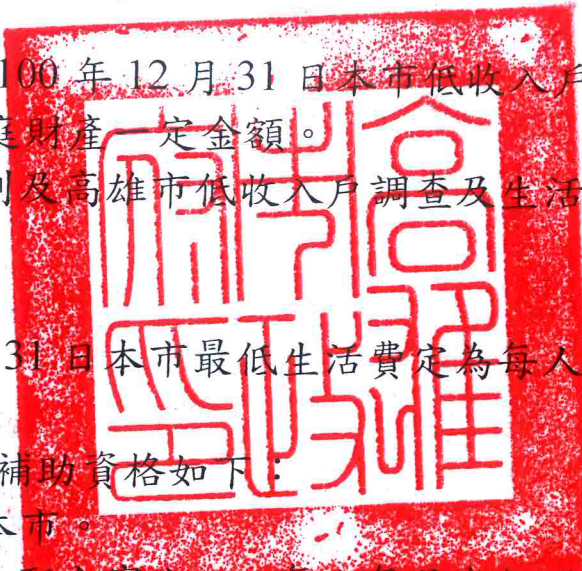 100 年 12 月 31 日本市低收入戶
庭財產一定金額。
及高雄市低收入戶調查及生活
31 日本市最低生活費定為每人
補助資格如下：
本市。
高雄市政府印